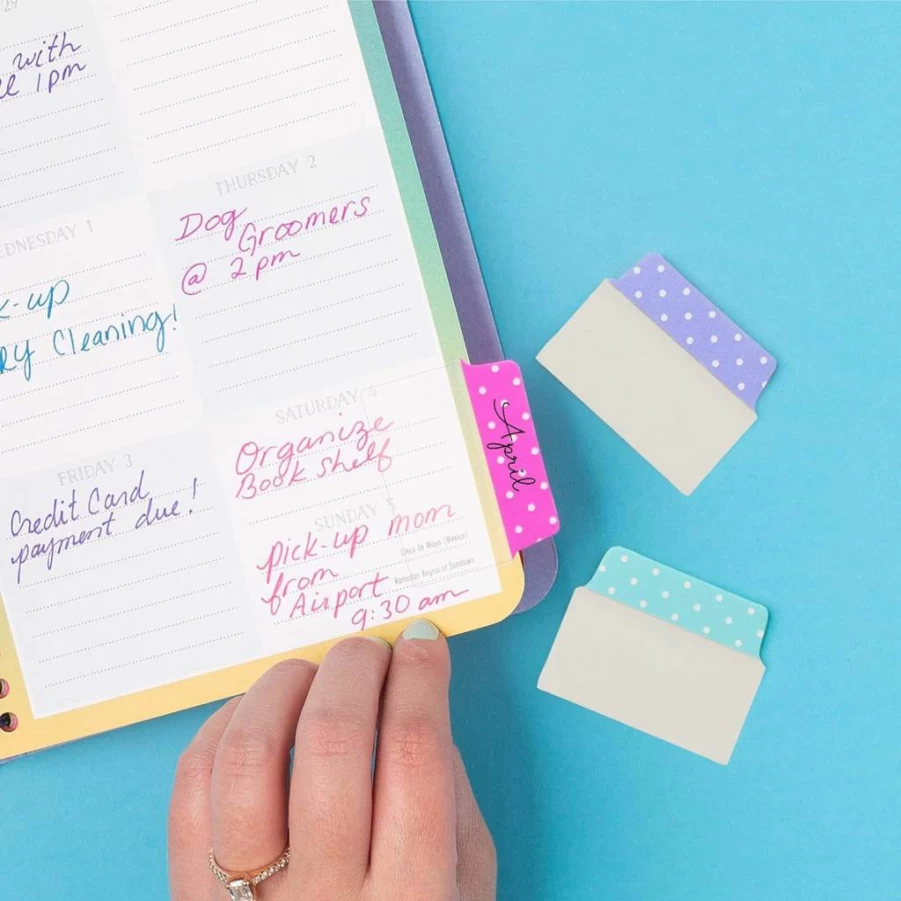 29
with
1pm
WEDNESDAY 1
-up
Cleaning!
THURSDAY 2
Dog
Groomers
@ 2pm
FRIDAY 3
Credit Card
payment due!
SATURDAY 4
Organize
Book Shelf
SUNDAY 5
Pick-up mom
from
Airport
9:30 am
Cinco de Mayo (Mexico)
Ramadan Begins at Sundown
April